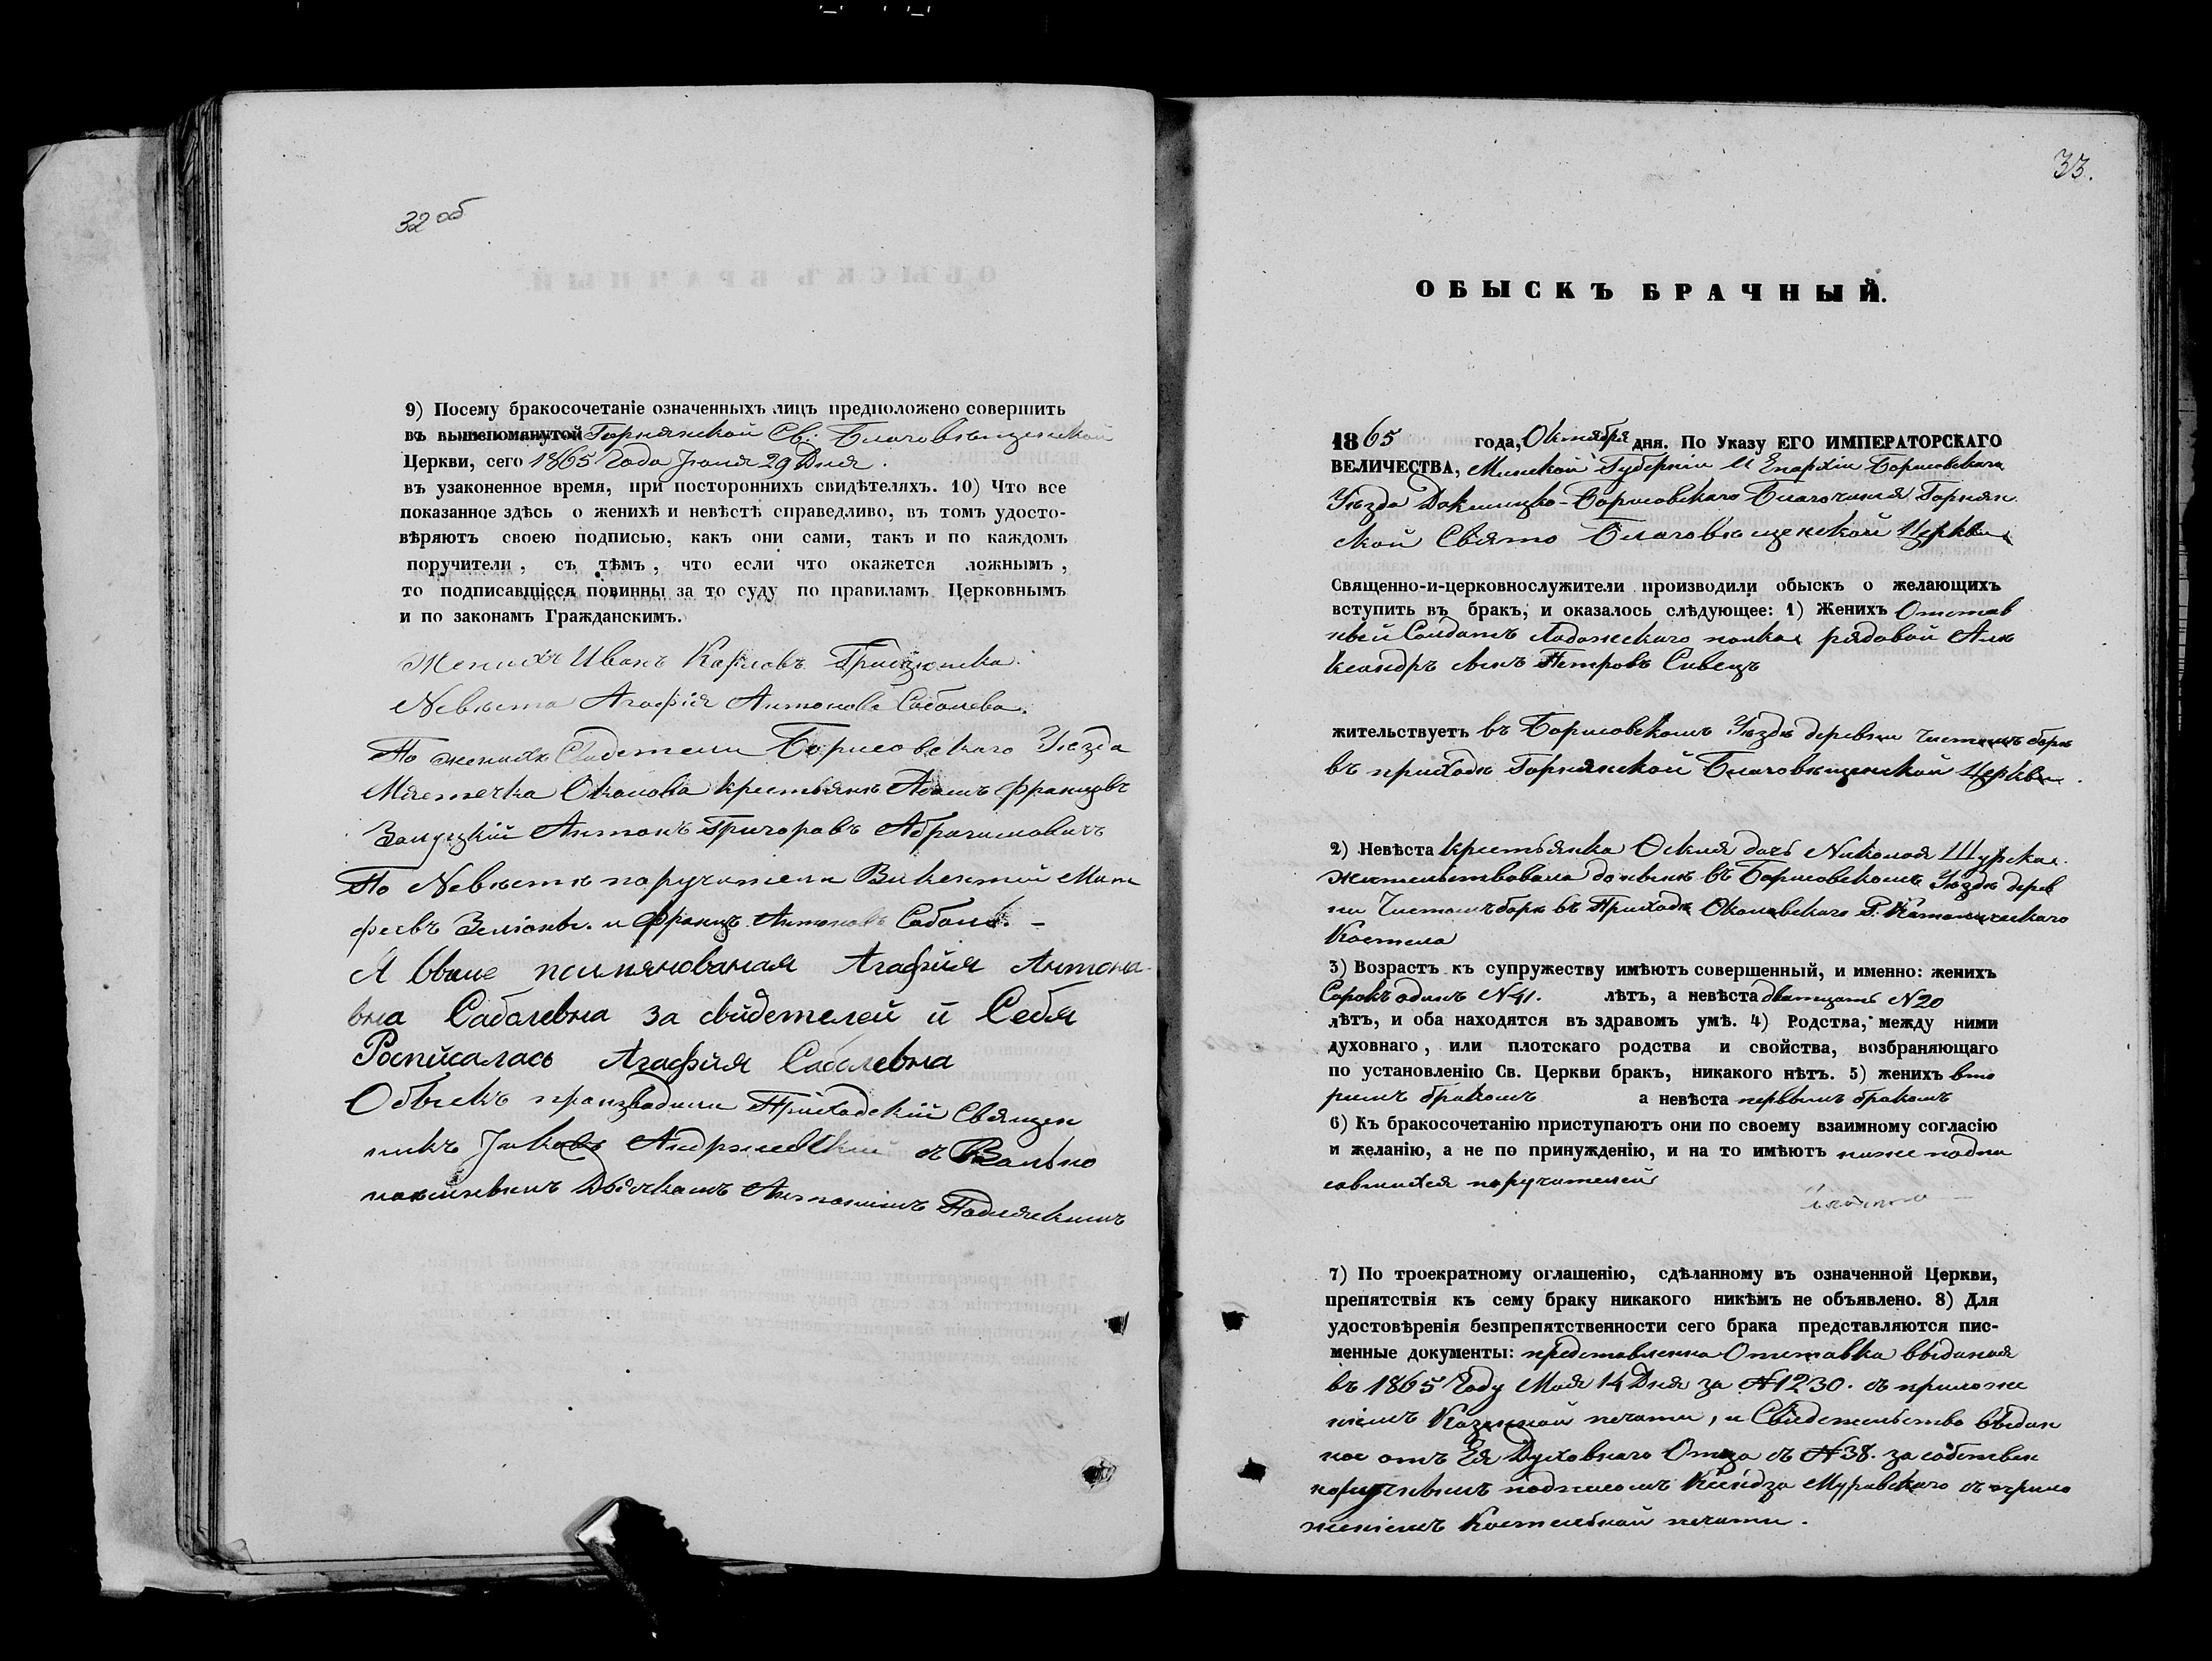 32 об
9) Посему бракосочетаніе означенныхъ лицъ предположено совершить
въ вышепомянутой Горнянской Св: Благовѣщенской
Церкви, сего 1865 Года Іюня 29 Дня.
въ узаконенное время, при постороннихъ свидѣтеляхъ. 10) Что все
показанное здѣсь о женихѣ и невѣстѣ справедливо, въ томъ удосто-
вѣряютъ своею подписью, какъ они сами, такъ и по каждомъ
поручители, съ тѣмъ, что если что окажется ложнымъ,
то подписавшіеся повинны за то суду по правиламъ Церковнымъ
и по законамъ Гражданскимъ.
Женихъ Иванъ Карловъ
Невѣста Агафія Антонова Соболева.
По женихѣ Свидетели Борисовскаго Уѣзда
Мястечка Околова крестьянѣ Адамъ Францовъ
Залуцкій Антонъ Григоровъ Абрагимовичъ
По Невѣстѣ поручатели Викентій Мат
феевъ и Францъ Антоновъ Соболь. –
Я Выше помянованая Агафия Антона-
вна Сабалевна За свидетелей и Себя
Росписалась Агафия Сабалевна
Обыскъ производили Приходскій Священ
никъ Іаковъ съ Вольно
наемнымъ Дьячкомъ Антоніемъ
33.
ОБЫСКЪ БРАЧНЫЙ.
1865 года, Октября дня. По Указу ЕГО ИМПЕРАТОРСКАГО
ВЕЛИЧЕСТВА, Минской Губерніи И Епархіи Борисовскаго
Уѣзда Докшицко-Борисовскаго Благочинія Горнян
ской Свято Благовѣщенской Церкви
Священно-и-церковнослужители производили обыскъ о желающихъ
вступить въ бракъ, и оказалось слѣдующее: 1) Женихъ Отстав
ный Солдатъ Ладожскаго полка рядовой Але
ксандръ Петровъ Сивецъ
жительствуетъ въ Борисовскомъ Уѣздѣ деревни Чистомъ борѣ
въ приходѣ Горнянской Благовѣщенской Церкви.
2) Невѣста крестьянка дочь Николая Шурская.
жительствовала до нынѣ въ Борисовскомъ Уѣздѣ дерев
ни Чистомъ борѣ въ Приходѣ Околовскаго Р. Католическаго
Костела
3) Возрастъ къ супружеству имѣютъ совершенный, и именно: женихъ
Сорокъ одинъ N 41. лѣтъ, а невѣста дватцать N 20
лѣтъ, и оба находятся въ здравомъ умѣ. 4) Родства, между ними
духовнаго, или плотскаго родства и свойства, возбраняющаго
по установленію Св. Церкви бракъ, никакого нѣтъ. 5) женихъ вто
римъ бракомъ а невѣста первымъ бракомъ
6) Къ бракосочетанію приступаютъ они по своему взаимному согласію
и желанію, а не по принужденію, и на то имѣютъ ниже подпи
савшихся поручителей
7) По троекратному оглашенію, сдѣланному въ означенной Церкви,
препятствія къ сему браку никакого никѣмъ не объявлено. 8) Для
удостовѣренія безпрепятственности сего брака представляются пис-
менные документы: представленна Отставка выданая
въ 1865 Году Мая 14 Дня за N 1230. съ приложе
ніемъ Казенной печати, и Свидетельство выдан
ное отъ Ея Духовнаго Отца съ N 38. за собствен
норучнымъ подписомъ Ксіондза Муравскаго съ прило
женіемъ Костельной печати.